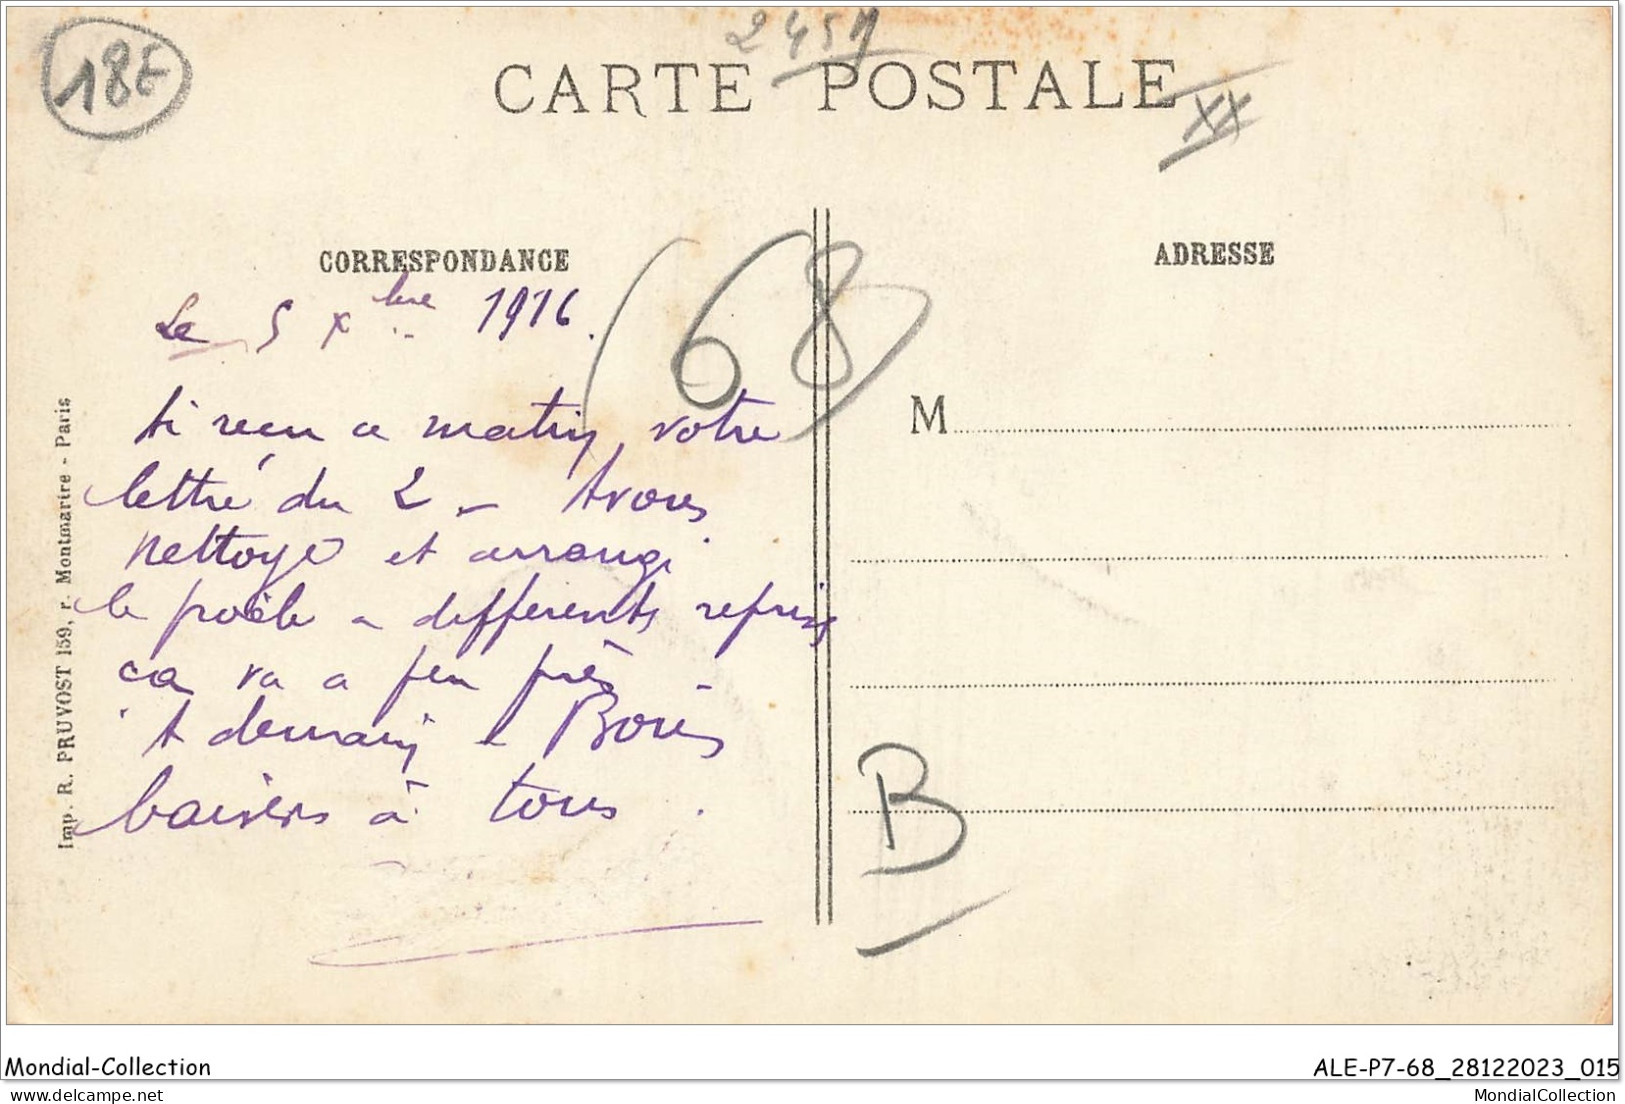 18E
245M
CARTE POSTALE
XX
CORRESPONDANCE
ADRESSE
Le 5 Xbre 1916.
(68)
Ai reçu ce matin, votre
lettre du 2 - Avons
nettoyé et arrangé
le poêle a differents reprises
ca va a peu près -
A demain - Bons
baisers à tous.
M
B
Imp. R. PRUVOST 159, r. Montmartre - Paris
Mondial-Collection
ALE-P7-68_28122023_015
delcampe.net
MondialCollection